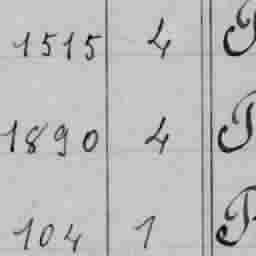 1515 4
1890 4
104 1